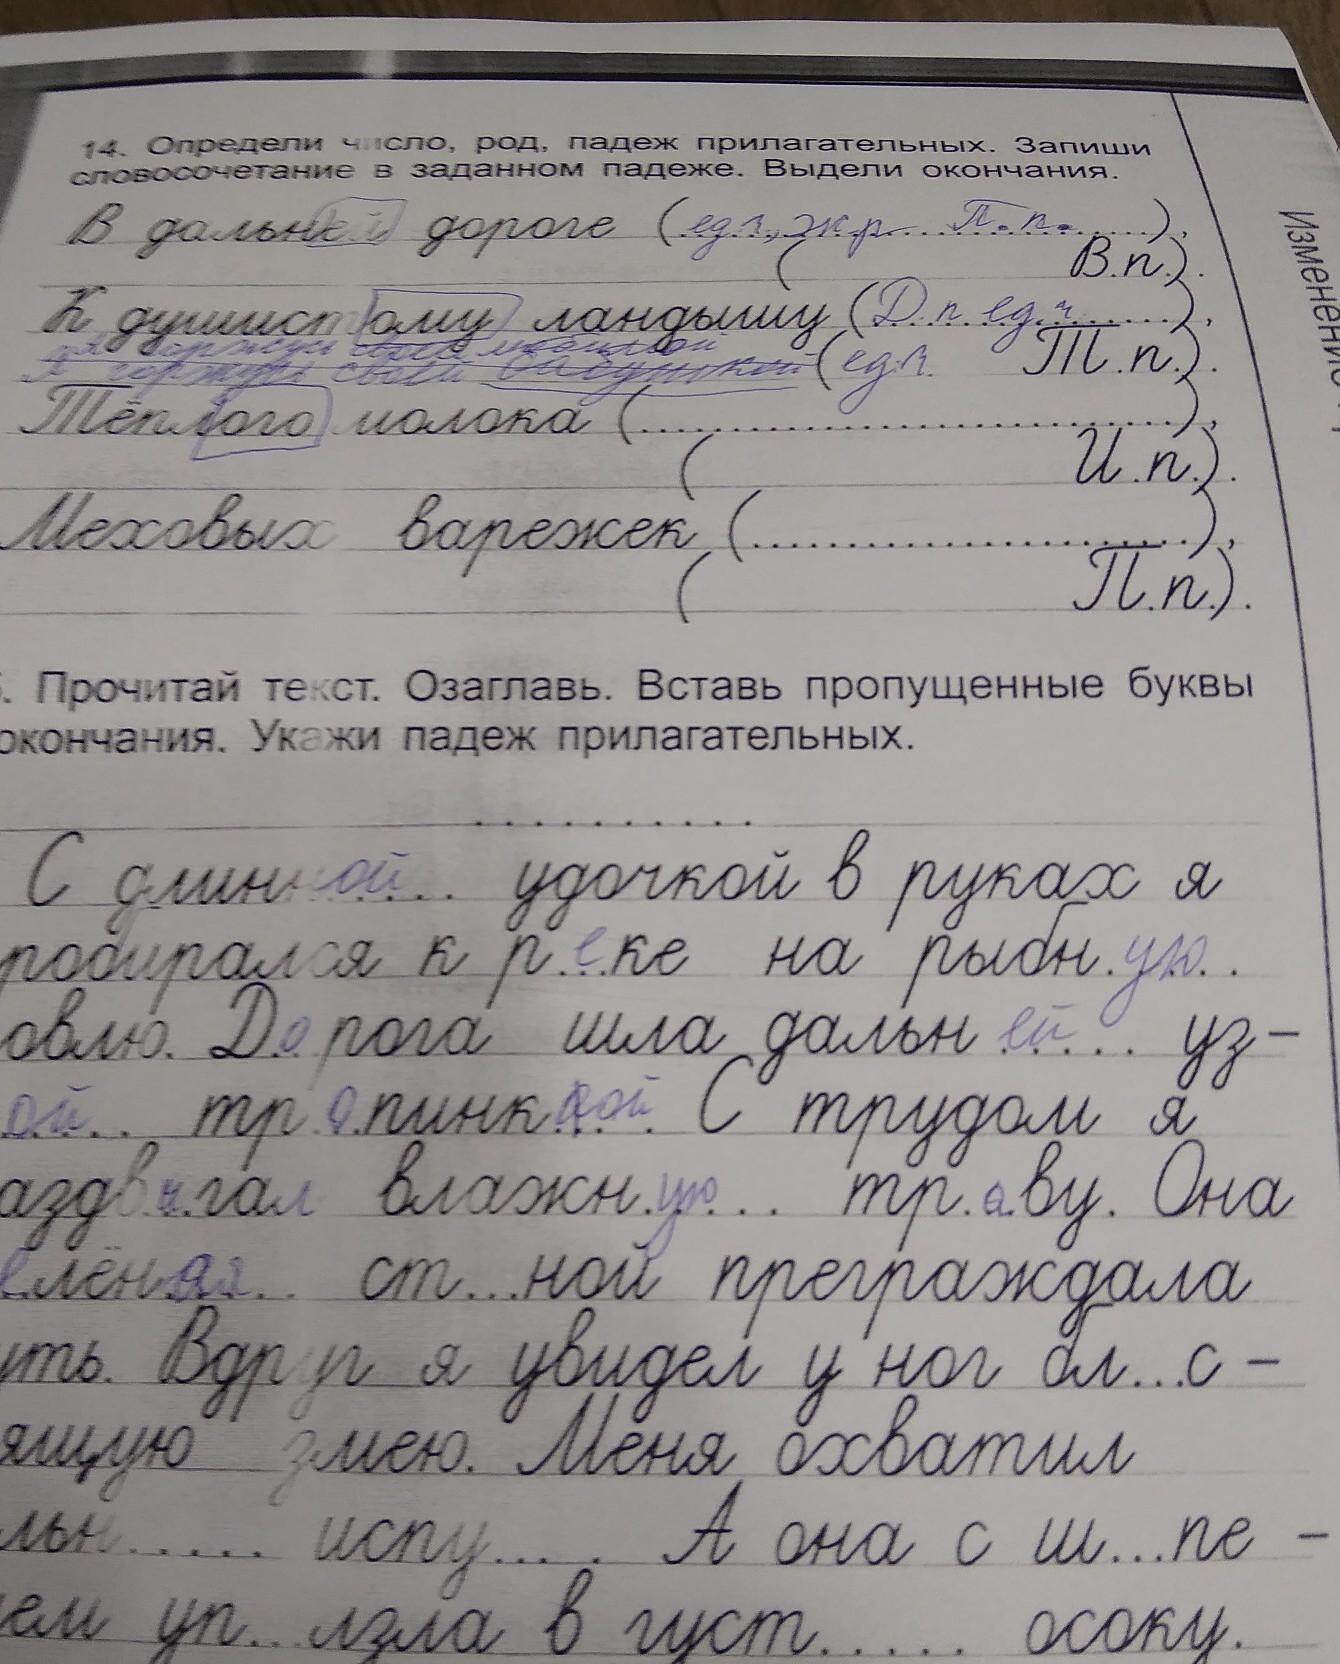 14. Определи число, род, падеж прилагательных. Запиши
словосочетание в заданном падеже. Выдели окончания.
В дальней дороге (ед.ч., ж.р. П.п.),
( В.п.).
К душистому ландышу (Д.п ед.ч),
я горжусь своей
Я горжусь своей бабушкой (ед.ч. Т.п.).
Тёплого молока (....................),
( И.п.).
Меховых варежек (....................),
( П.п.).
. Прочитай текст. Озаглавь. Вставь пропущенные буквы
окончания. Укажи падеж прилагательных.
С длинной.. удочкой в руках я
робирался к р.е.ке на рыбн.ую..
овлю. Дорога шла дальн ей... уз-
ой.. тр.о.пинк ой. С трудом я
аздви.гал влажн.ую... тр.а.ву. Она
лёная.. ст...ной преграждала
уть. Вдруг я увидел у ног бл...с-
ящую змею. Меня охватил
льн..... испу.... А она с ш...пе-
ем уп...лзла в густ..... осоку.
Изменение